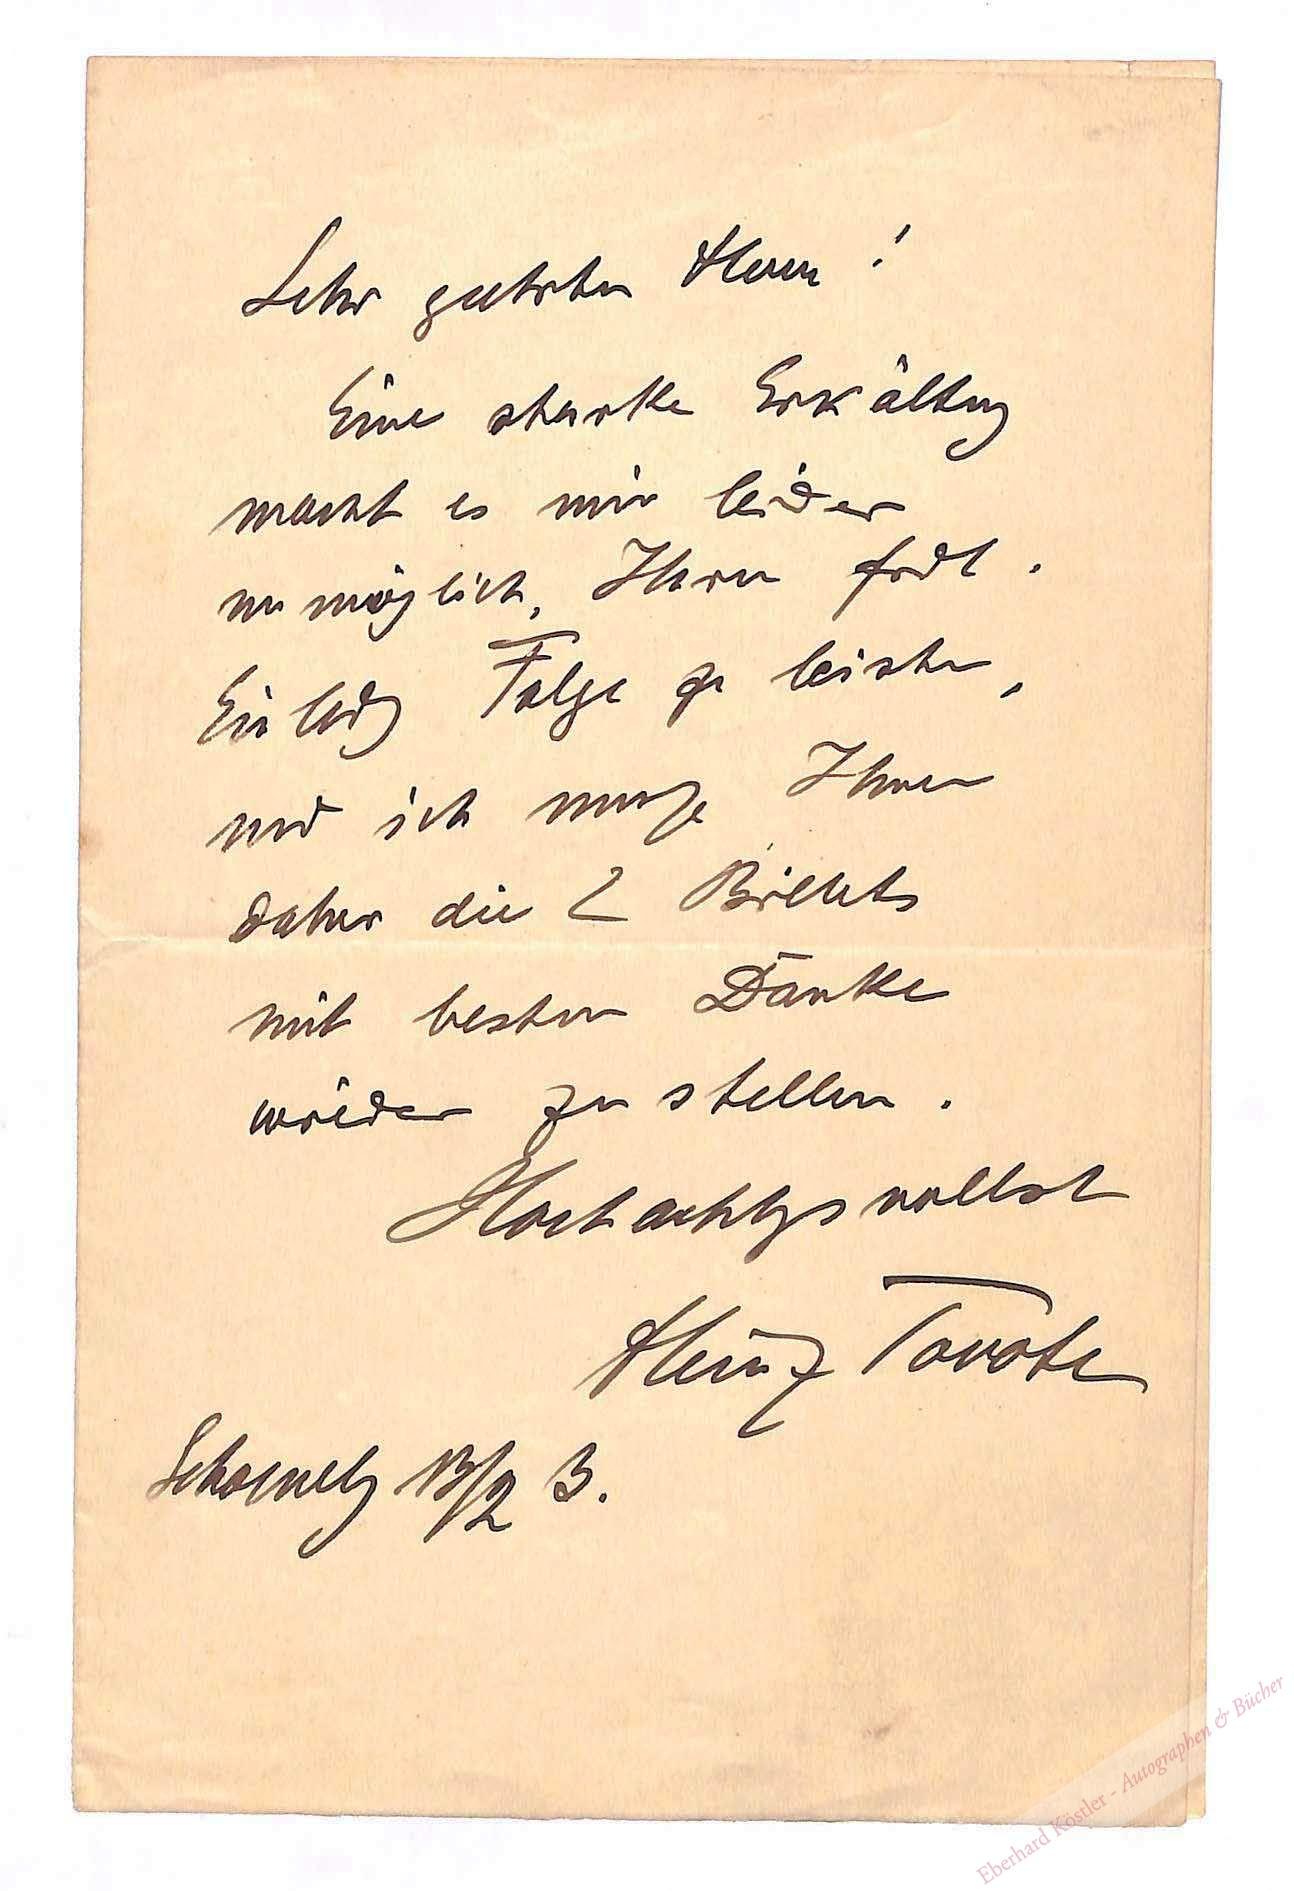 Sehr geehrter Herr!
Eine starke Erkältung
macht es mir leider
unmöglich, Ihrer frdl.
Einladg Folge zu leisten,
und ich muß Ihnen
daher die 2 Billets
mit bestem Danke
wieder zustellen.
Hochachtgsvollst
Heinz Tovote
Schoenebg 13/2 3.
Eberhard Köstler - Autographen & Bücher